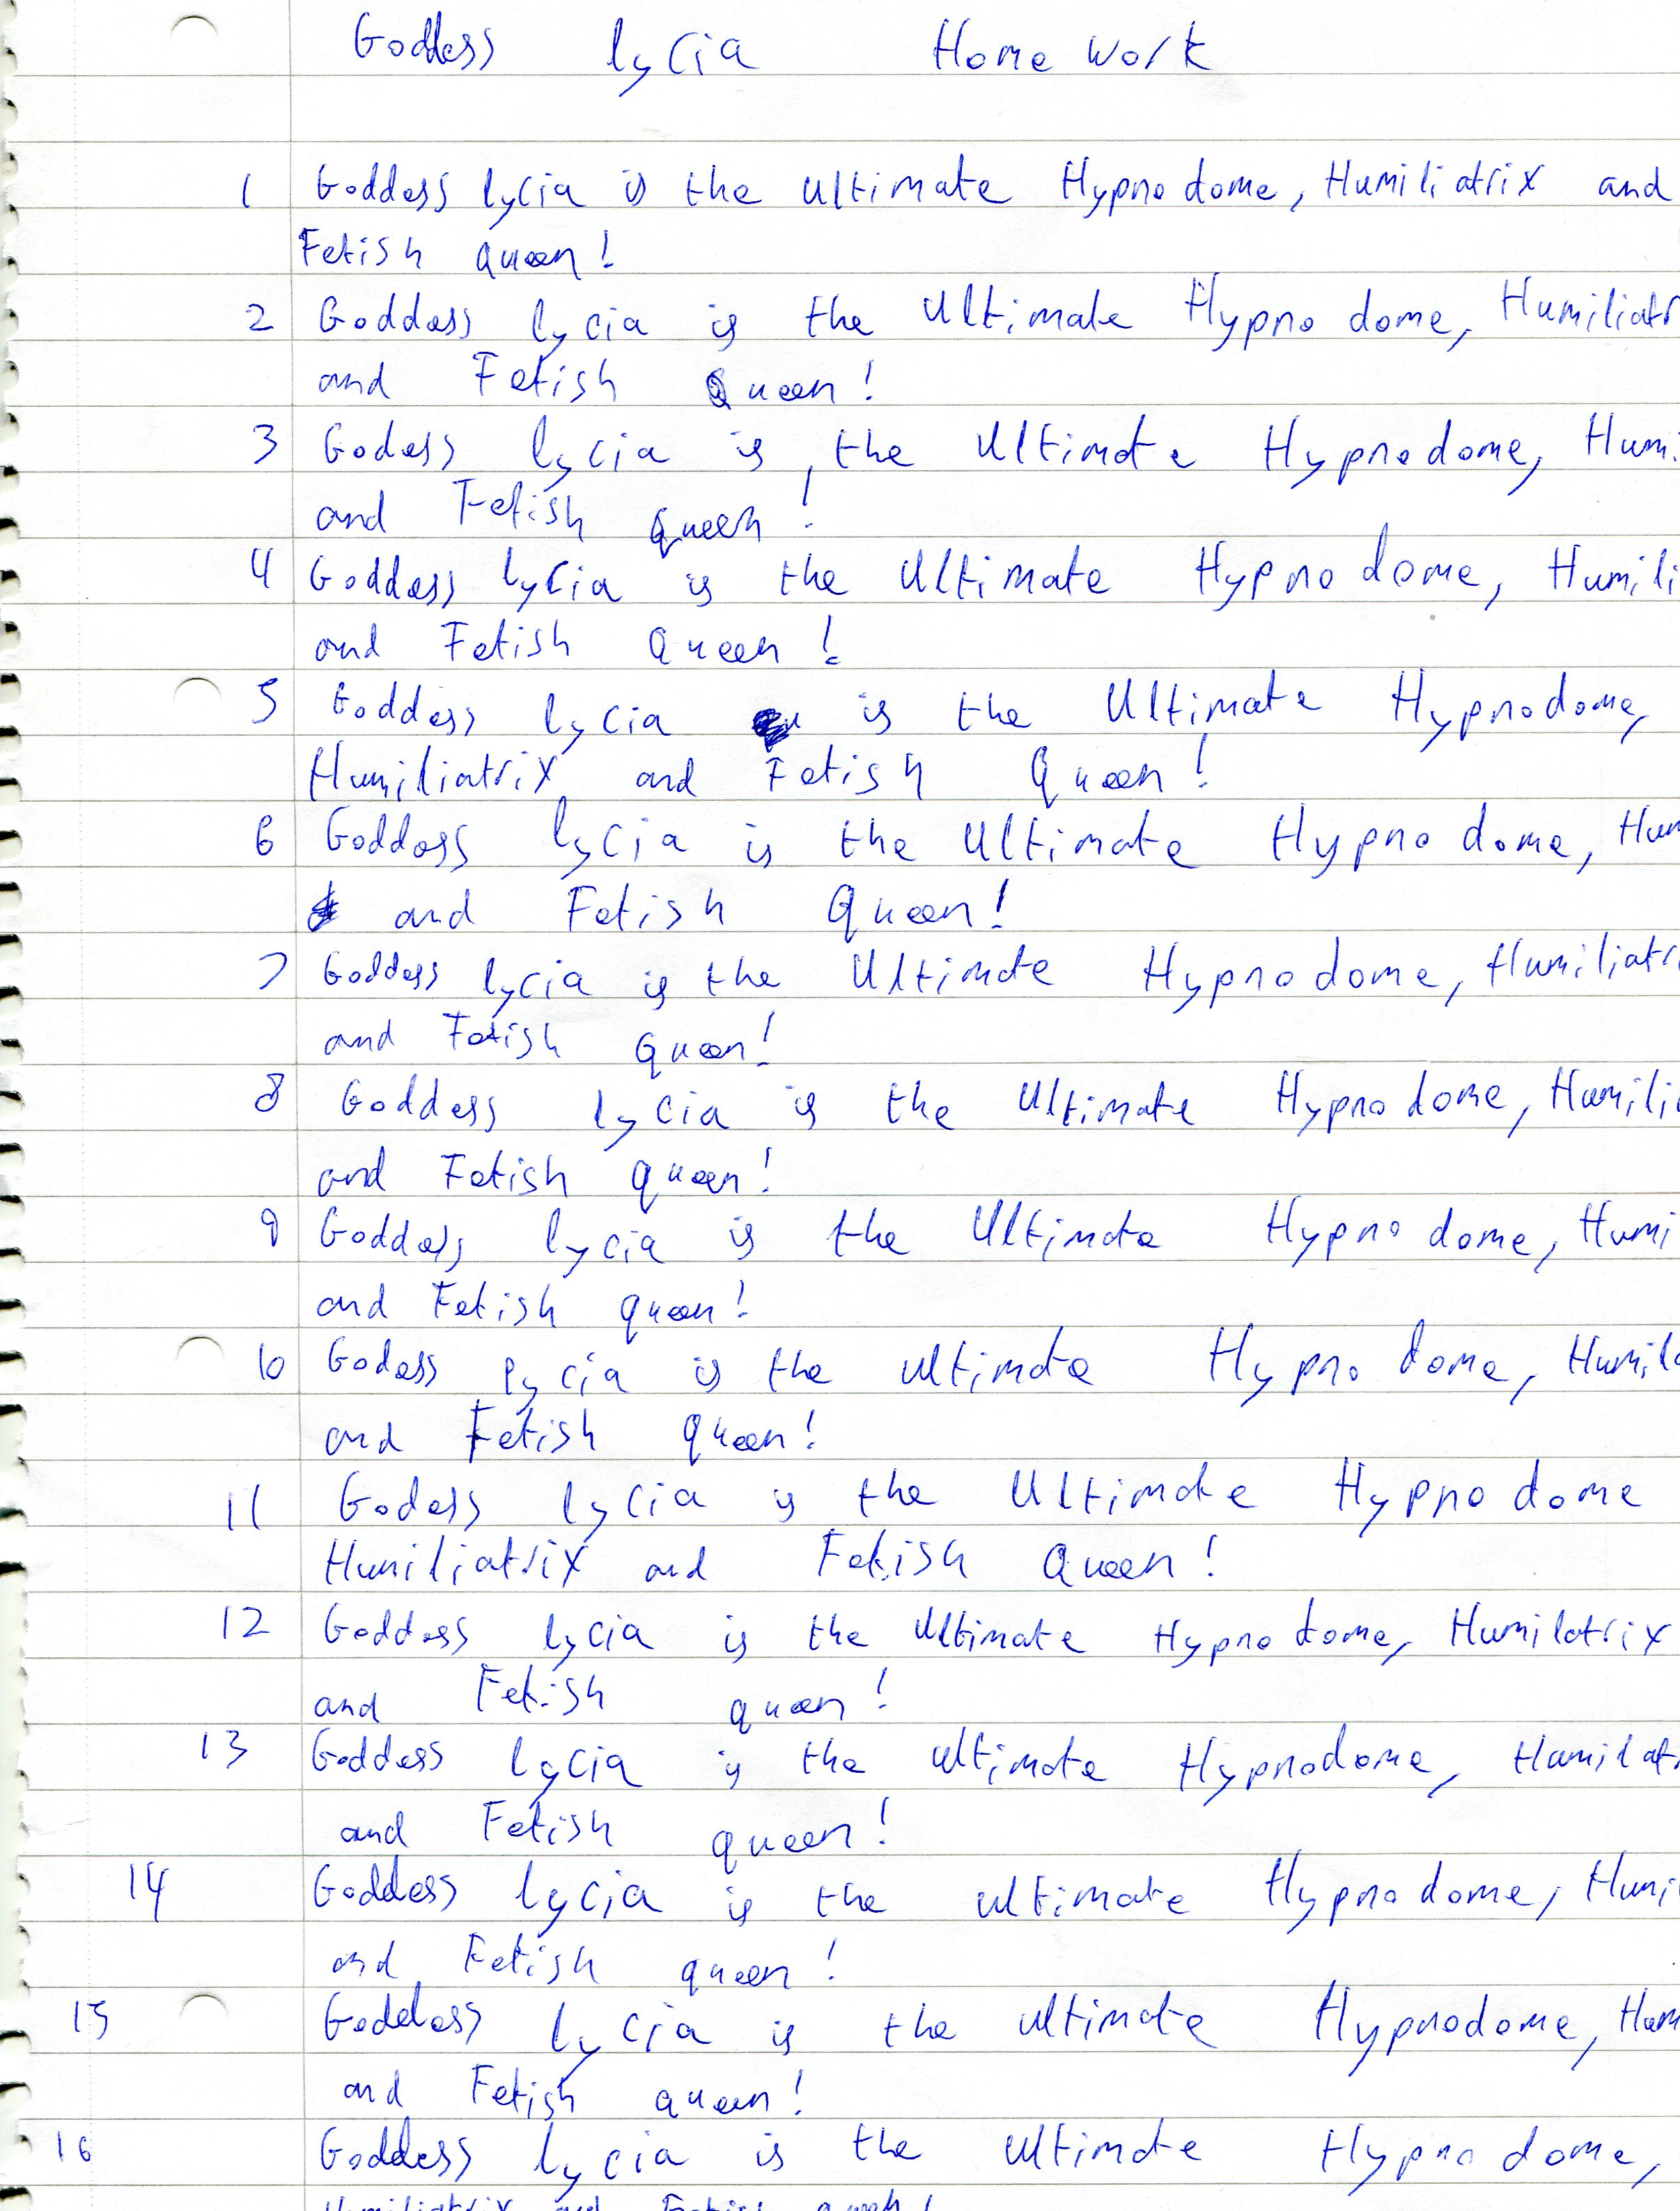 Goddess lycia Home work
1 Goddess lycia is the ultimate Hypnodome, Humiliatrix and
Fetish queen!
2 Goddess lycia is the Ultimate Hypno dome, Humiliatr
and Fetish Queen!
3 Godess lycia is, the Ultimate Hypnodome, Humi
and Fetish queen!
4 Goddess lycia is the Ultimate Hypno dome, Humili
and Fetish Queen!
5 Goddess lycia is the Ultimate Hypnodome,
Humiliatrix and Fetish Queen!
6 Goddess lycia is the Ultimate Hypno dome, Hum
and Fetish Queen!
7 Goddess lycia is the Ultimate Hypnodome, Humiliatri
and Fetish Queen!
8 Goddess lycia is the Ultimate Hypno dome, Humili
and Fetish queen!
9 Goddess lycia is the Ultimate Hypno dome, Humi
and Fetish queen!
10 Godess lycia is the ultimate Hypno dome, Humil
and Fetish queen!
11 Godess lycia is the Ultimate Hypno dome
Humiliatrix and Fetish Queen!
12 Goddess lycia is the Ultimate Hypno dome, Humilatrix
and Fetish queen!
13 Goddess lycia is the ultimate Hypnodome, Humilat
and Fetish queen!
14 Goddess lycia is the ultimate Hypno dome, Humi
and Fetish queen!
15 Goddess lycia is the ultimate Hypnodome, Hum
and Fetish queen!
16 Goddess lycia is the ultimate Hypno dome,
Humiliatrix and Fetish queen!